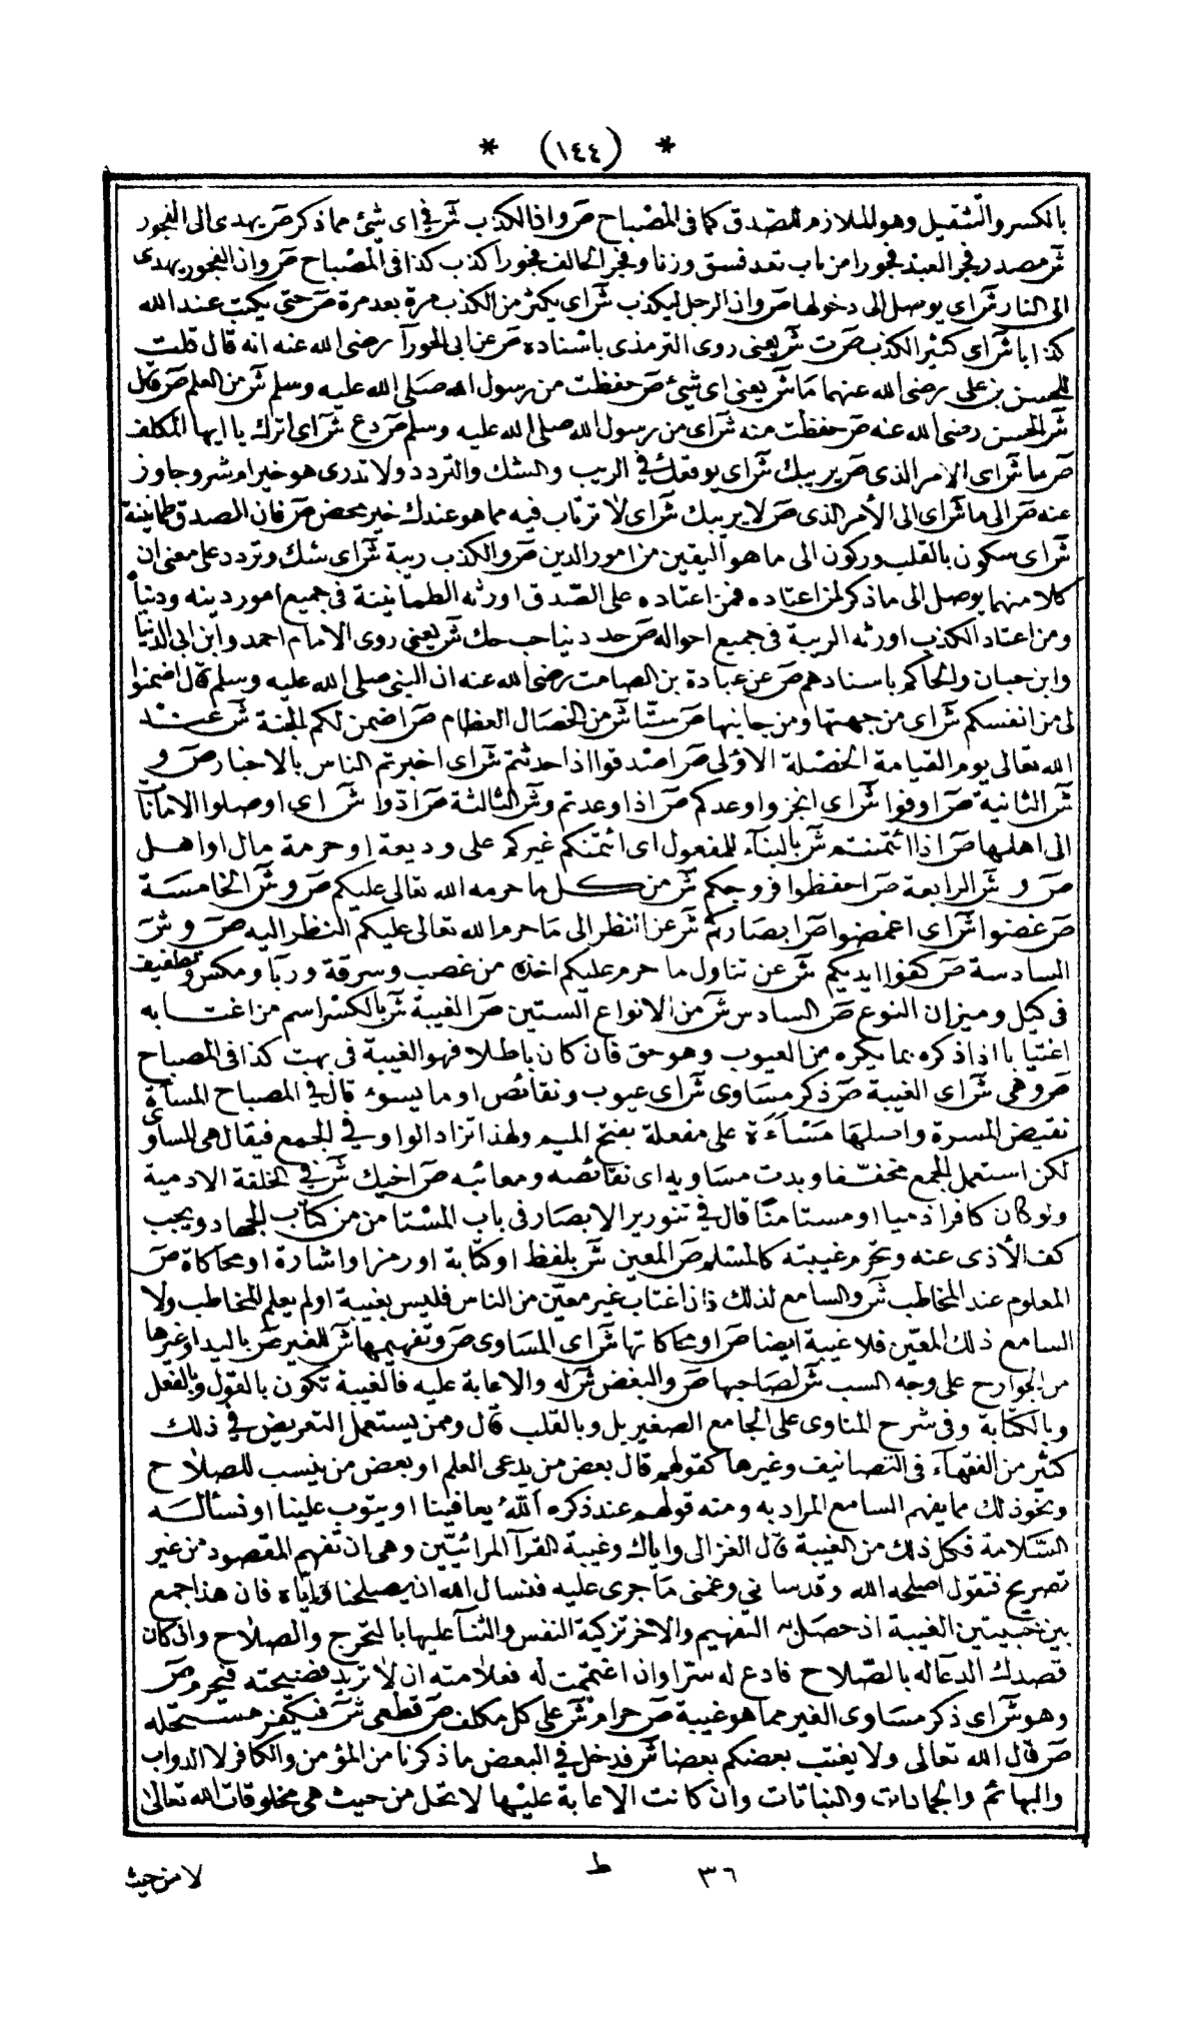 * (١٤٤) *
بالكسر والتثقيل وهو الملازم للصدق كما في المصباح صَ وان الكذب شَ في اى شئ مما ذكر صَ يهدى الى الفجور
شَ مصدر فجر العبد فجورا من باب قعد فسق وزنا وفجر الحالف فجورا كذب كذا في المصباح صَ وان الفجور يهدى
الى النار شَ اى يوصل الى دخولها صَ وان الرجل ليكذب شَ اى يكثر من الكذب مرة بعد مرة صَ حتى يكتب عند الله
كذابا شَ اى كثير الكذب صَ ت شَ يعنى روى الترمذى باسناده صَ عن ابى الحورآ رضى الله عنه انه قال قلت
للحسن بن على رضى الله عنهما مَا شَ يعنى اى شئ صَ حفظت من رسول الله صلى الله عليه وسلم شَ من العلم صَ قال
شَ الحسن رضى الله عنه صَ حفظت منه شَ اى من رسول الله صلى الله عليه وسلم صَ دع شَ اى اترك يا ايها المكلف
صَ ما شَ اى الامر الذى صَ يريبك شَ اى يوقعك في الريب والشك والتردد ولا تدرى هو خير ام شر وجاوز
عنه صَ الى ما شَ اى الى الأمر الذى صَ لا يريبك شَ اى لا ترتاب فيه مما هو عندك خير محض صَ فان الصدق طمانينة
شَ اى سكون بالقلب وركون الى ما هو اليقين من امور الدين صَ والكذب ريبة شَ اى شك وتردد على معنى ان
كلا منهما يوصل الى ما ذكر لمن اعتاده فمن اعتاده على الصدق اورثه الطمانينة فى جميع امور دينه ودنياه
ومن اعتاد الكذب اورثه الريبة فى جميع احواله صَ حد دنيا حب حك شَ يعنى روى الامام احمد وابن ابى الدنيا
وابن حبان والحاكم باسنادهم صَ عن عبادة بن الصامت رضى الله عنه ان النبى صلى الله عليه وسلم قال اضمنوا
لى من انفسكم شَ اى من جهتها ومن جانبها صَ ستا شَ من الخصال العظام صَ اضمن لكم الجنة شَ عند
الله تعالى يوم القيامة الخصلة الاولى صَ اصدقوا اذا حدثتم شَ اى اخبرتم الناس بالاخبار صَ و
شَ الثانية صَ اوفوا شَ اى انجزوا وعدكم صَ اذا وعدتم و شَ الثالثة صَ ادّوا شَ اى اوصلوا الامانات
الى اهلها صَ اذا ائتمنتم شَ بالبنآء للمفعول اى ائتمنكم غيركم على وديعة او حرمة مال او اهل
صَ و شَ الرابعة صَ احفظوا فروجكم شَ من كل ما حرمه الله تعالى عليكم صَ و شَ الخامسة
صَ غضوا شَ اى اغمضوا صَ ابصاركم شَ عن النظر الى مَا حرم الله تعالى عليكم النظر اليه صَ و شَ
السادسة صَ كفوا ايديكم شَ عن تناول ما حرم عليكم اخذه من غصب وسرقة وربا ومكس وتطفيف
فى كيل وميزان النوع صَ السادس شَ من الانواع الستين صَ الغيبة شَ بالكسر اسم من اغتابه
اغتيابا اذا ذكره بما يكره من العيوب وهو حق فان كان باطلا فهو الغيبة فى بهت كذا فى المصباح
صَ وهى شَ اى الغيبة صَ ذكر مسَاوى شَ اى عيوب ونقائص او ما يسوء قال في المصباح المسآة
نقيض المسرة واصلها مَسْاءَة على مفعلة بفتح الميم ولهذا تزاد الواو فى الجمع فيقال هى المساوى
لكن استعمل الجمع مخففا وبدت مسَاويه اى نقائصه ومعائبه صَ اخيك شَ في الخلقة الادمية
ولو كان كافرا ذميا او مستامنا قال في تنوير الابصار فى باب المستامن من كتاب الجهاد ويجب
كف الأذى عنه وتحرم غيبته كالمسلم صَ المعين شَ بلفظ او كتابة او رمز او اشارة او محاكاة صَ
المعلوم عند المخاطب شَ والسامع لذلك فان اغتاب غير معيّن من الناس فليس بغيبة او لم يعلم المخاطب ولا
السامع ذلك المعين فلا غيبة ايضا صَ او محاكاتها شَ اى المسَاوى صَ وتفهيمها شَ للغير صَ باليد او غيرها
من الجوارح على وجه السب شَ لصَاحبها صَ والبغض شَ له والاعابة عليه فالغيبة تكون بالقول وبالفعل
وبالكتابة وفى شرح المناوى على الجامع الصغير بل وبالقلب قال وممن يستعمل التعريض في ذلك
كثير من الفقهآء فى التصانيف وغيرها كقولهم قال بعض من يدعى العلم او بعض من ينسب للصلاح
ونحو ذلك مما يفهم السامع المراد به ومنه قولهم عند ذكره اللهُ يعافينا او يتوب علينا او نسأله
السّلامة فكل ذلك من الغيبة قال الغزالى واياك وغيبة القرآ المرائيّين وهى ان تفهم المقصود من غير
تصريح فتقول اصلحه الله وقد سانى وغمنى مَا جرى عليه فنسال الله ان يصلحنا واياه فان هذا جمع
بين خبيثين الغيبة اذ حصَل به التفهيم والاخر تزكية النفس والثنآ عليها بالتحرج والصلاح وان كان
قصدك الدعآ له بالصّلاح فادع له سرّا وان اغتممت له فعلامته ان لا تريد فضيحته فيجرم صَ
وهو شَ اى ذكر مسَاوى الغير مما هو غيبة صَ حرام شَ على كل مكلف صَ قطعى شَ فيكفر مستحله
صَ قال الله تعالى ولا يغتب بعضكم بعضا شَ فدخل في البعض ما ذكرنا من المؤمن والكافر لا الدواب
والبهائم والجمادات والنباتات وان كانت الاعابة عليْها لا تحل من حيث هى مخلوقات الله تعالى
٣٦ ط لا من حيث